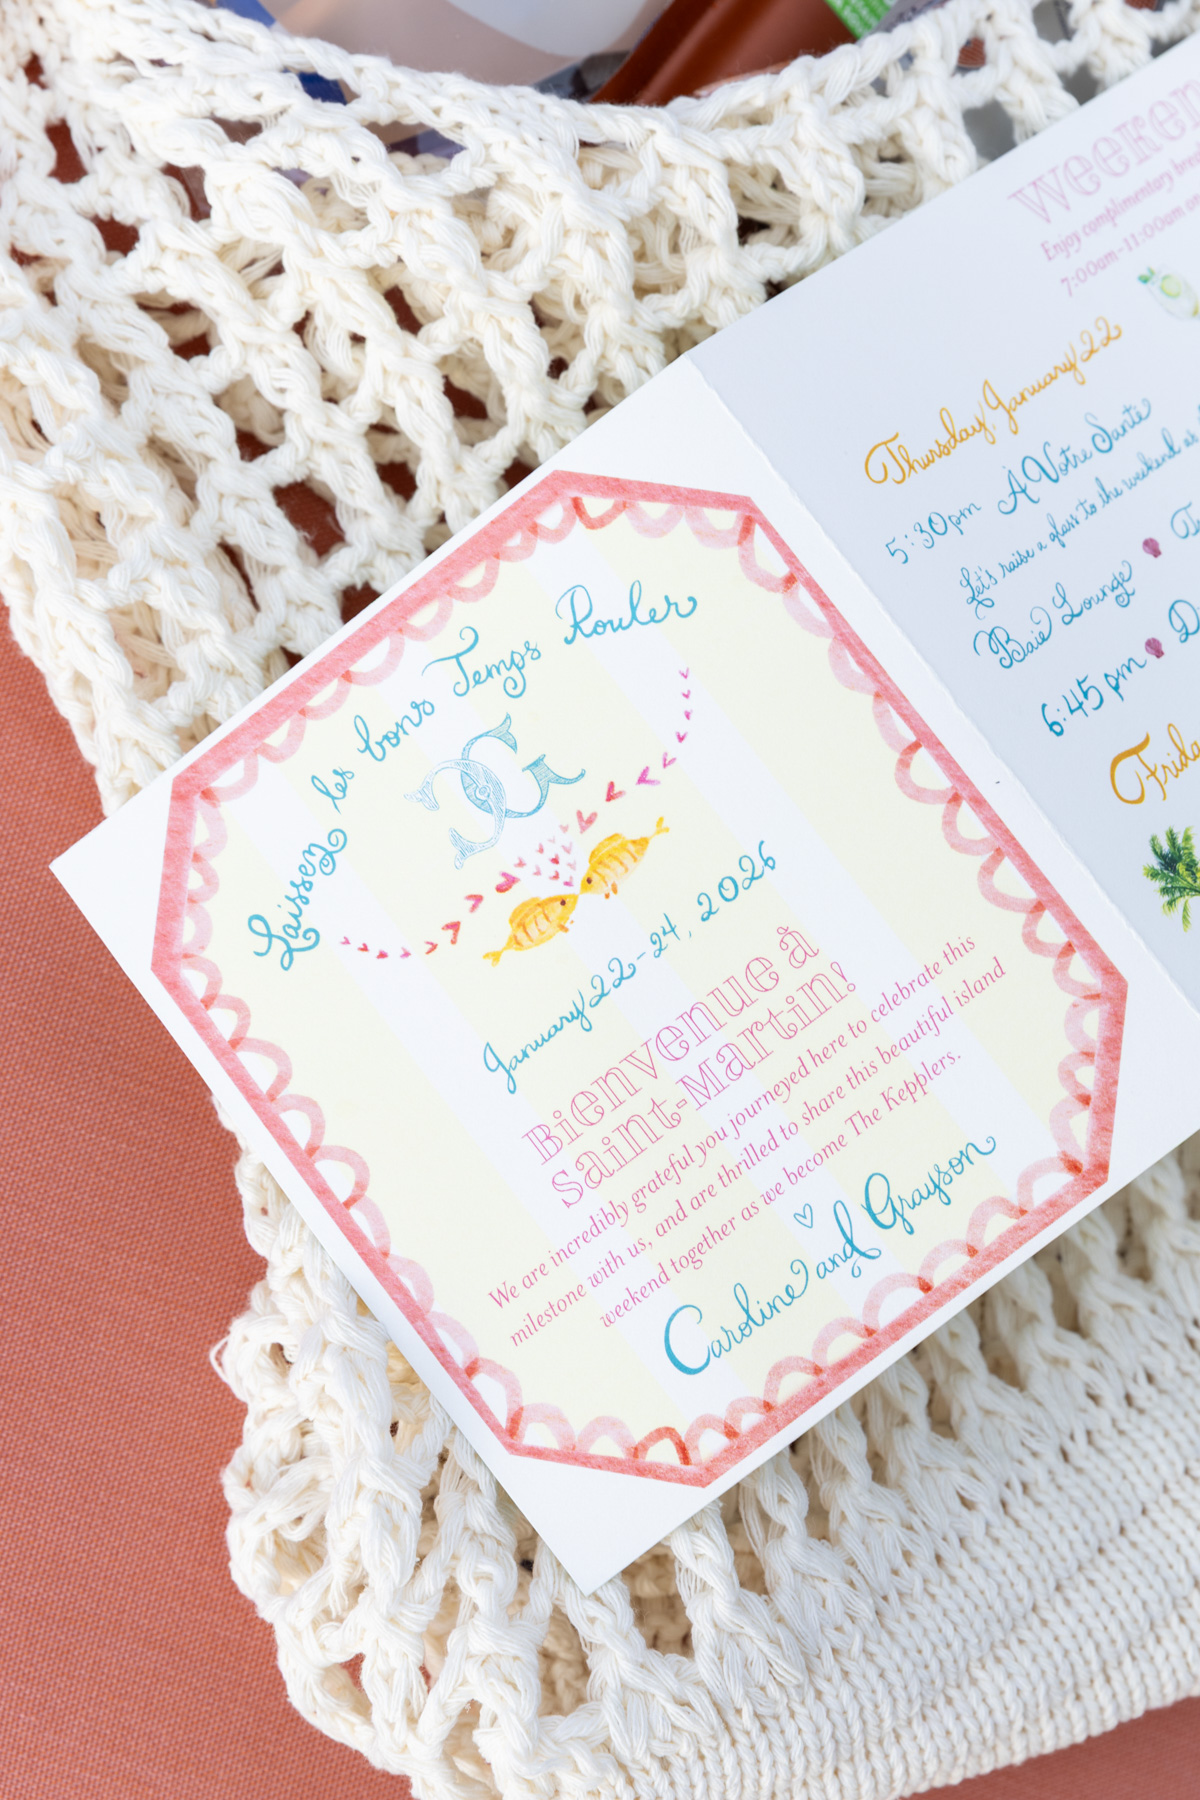 Laissez les bons Temps Rouler
CG
January 22-24, 2026
Bienvenue à
Saint-Martin!
We are incredibly grateful you journeyed here to celebrate this
milestone with us, and are thrilled to share this beautiful island
weekend together as we become The Kepplers.
Caroline and Grayson
Enjoy complimentary
7:00am-11:00am
Thursday, January 22
5:30pm À Votre Santé
Let's raise a glass to the weekend as
Baie Lounge
6:45pm